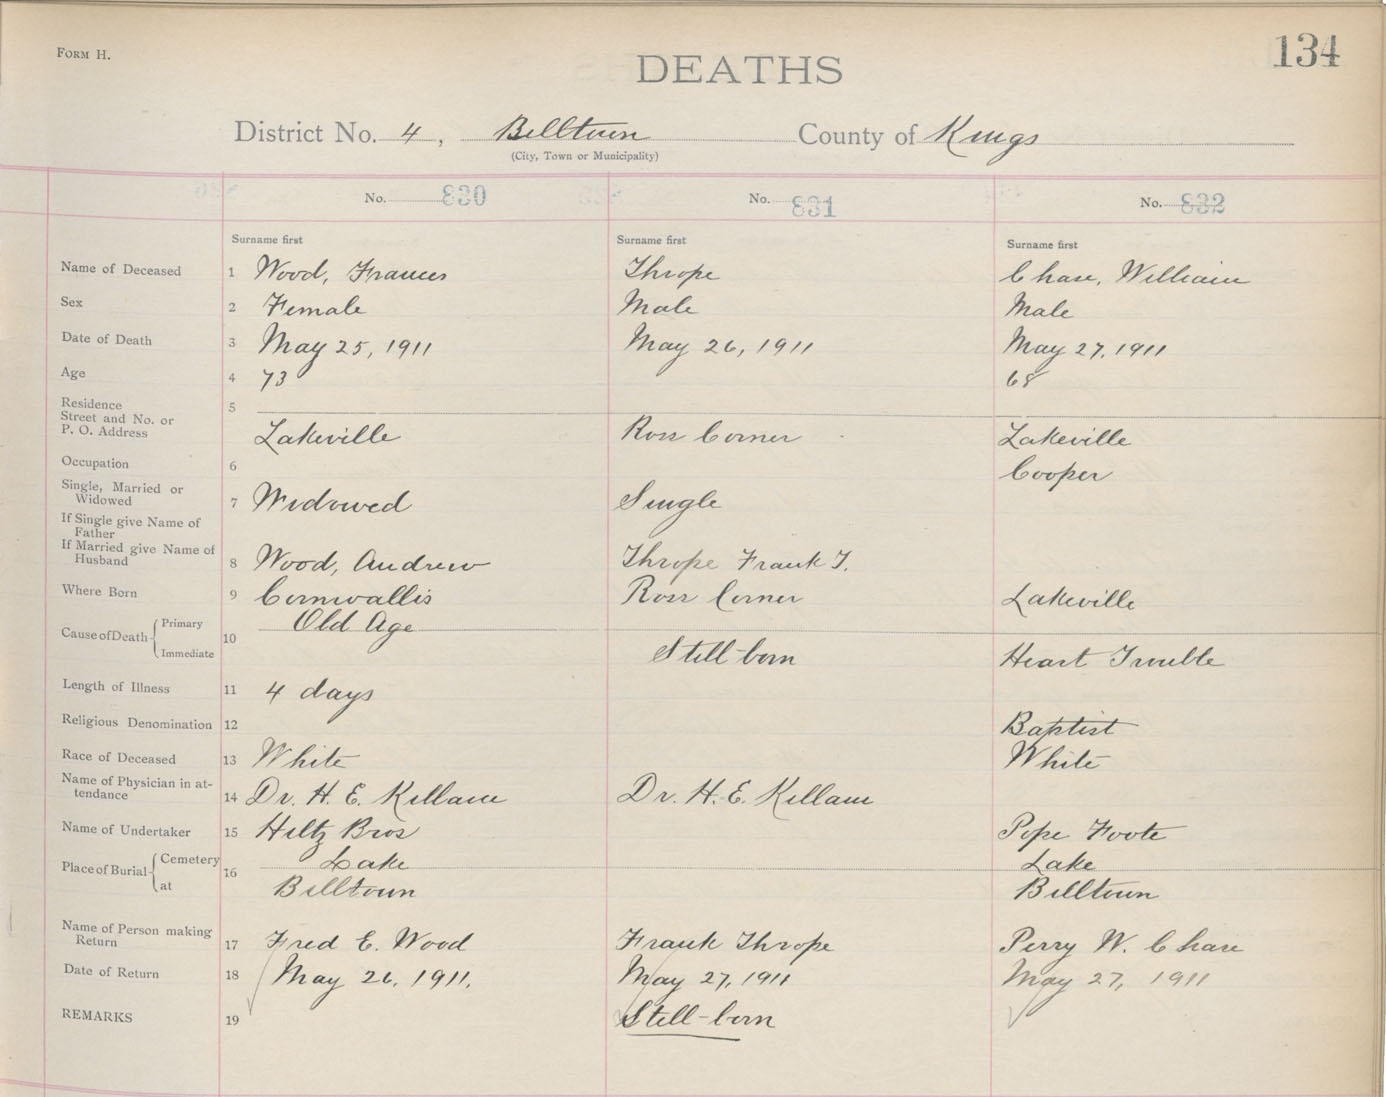 FORM H.
134
DEATHS
District No. 4, Billtown County of Kings
(City, Town or Municipality)
No. 830 No. 831 No. 832
Surname first Surname first Surname first
Name of Deceased 1 Wood, Frances Thrope Chase, William
Sex 2 Female Male Male
Date of Death 3 May 25, 1911 May 26, 1911 May 27, 1911
Age 4 73 68
Residence 5
Street and No. or
P. O. Address Lakeville Ross Corner Lakeville
Occupation 6 Cooper
Single, Married or
Widowed 7 Widowed Single
If Single give Name of
Father
If Married give Name of
Husband 8 Wood, Andrew Thrope Frank T.
Where Born 9 Cornwallis Ross Corner Lakeville
Cause of Death Primary 10 Old Age
Immediate Still-born Heart Trouble
Length of Illness 11 4 days
Religious Denomination 12 Baptist
Race of Deceased 13 White White
Name of Physician in at-
tendance 14 Dr. H. E. Killam Dr. H. E. Killam
Name of Undertaker 15 Hiltz Bros Pope Foote
Place of Burial Cemetery 16 Lake Lake
at Billtown Billtown
Name of Person making
Return 17 Fred E. Wood Frank Thrope Perry W. Chase
Date of Return 18 May 26, 1911. May 27, 1911 May 27, 1911
REMARKS 19 Still-born